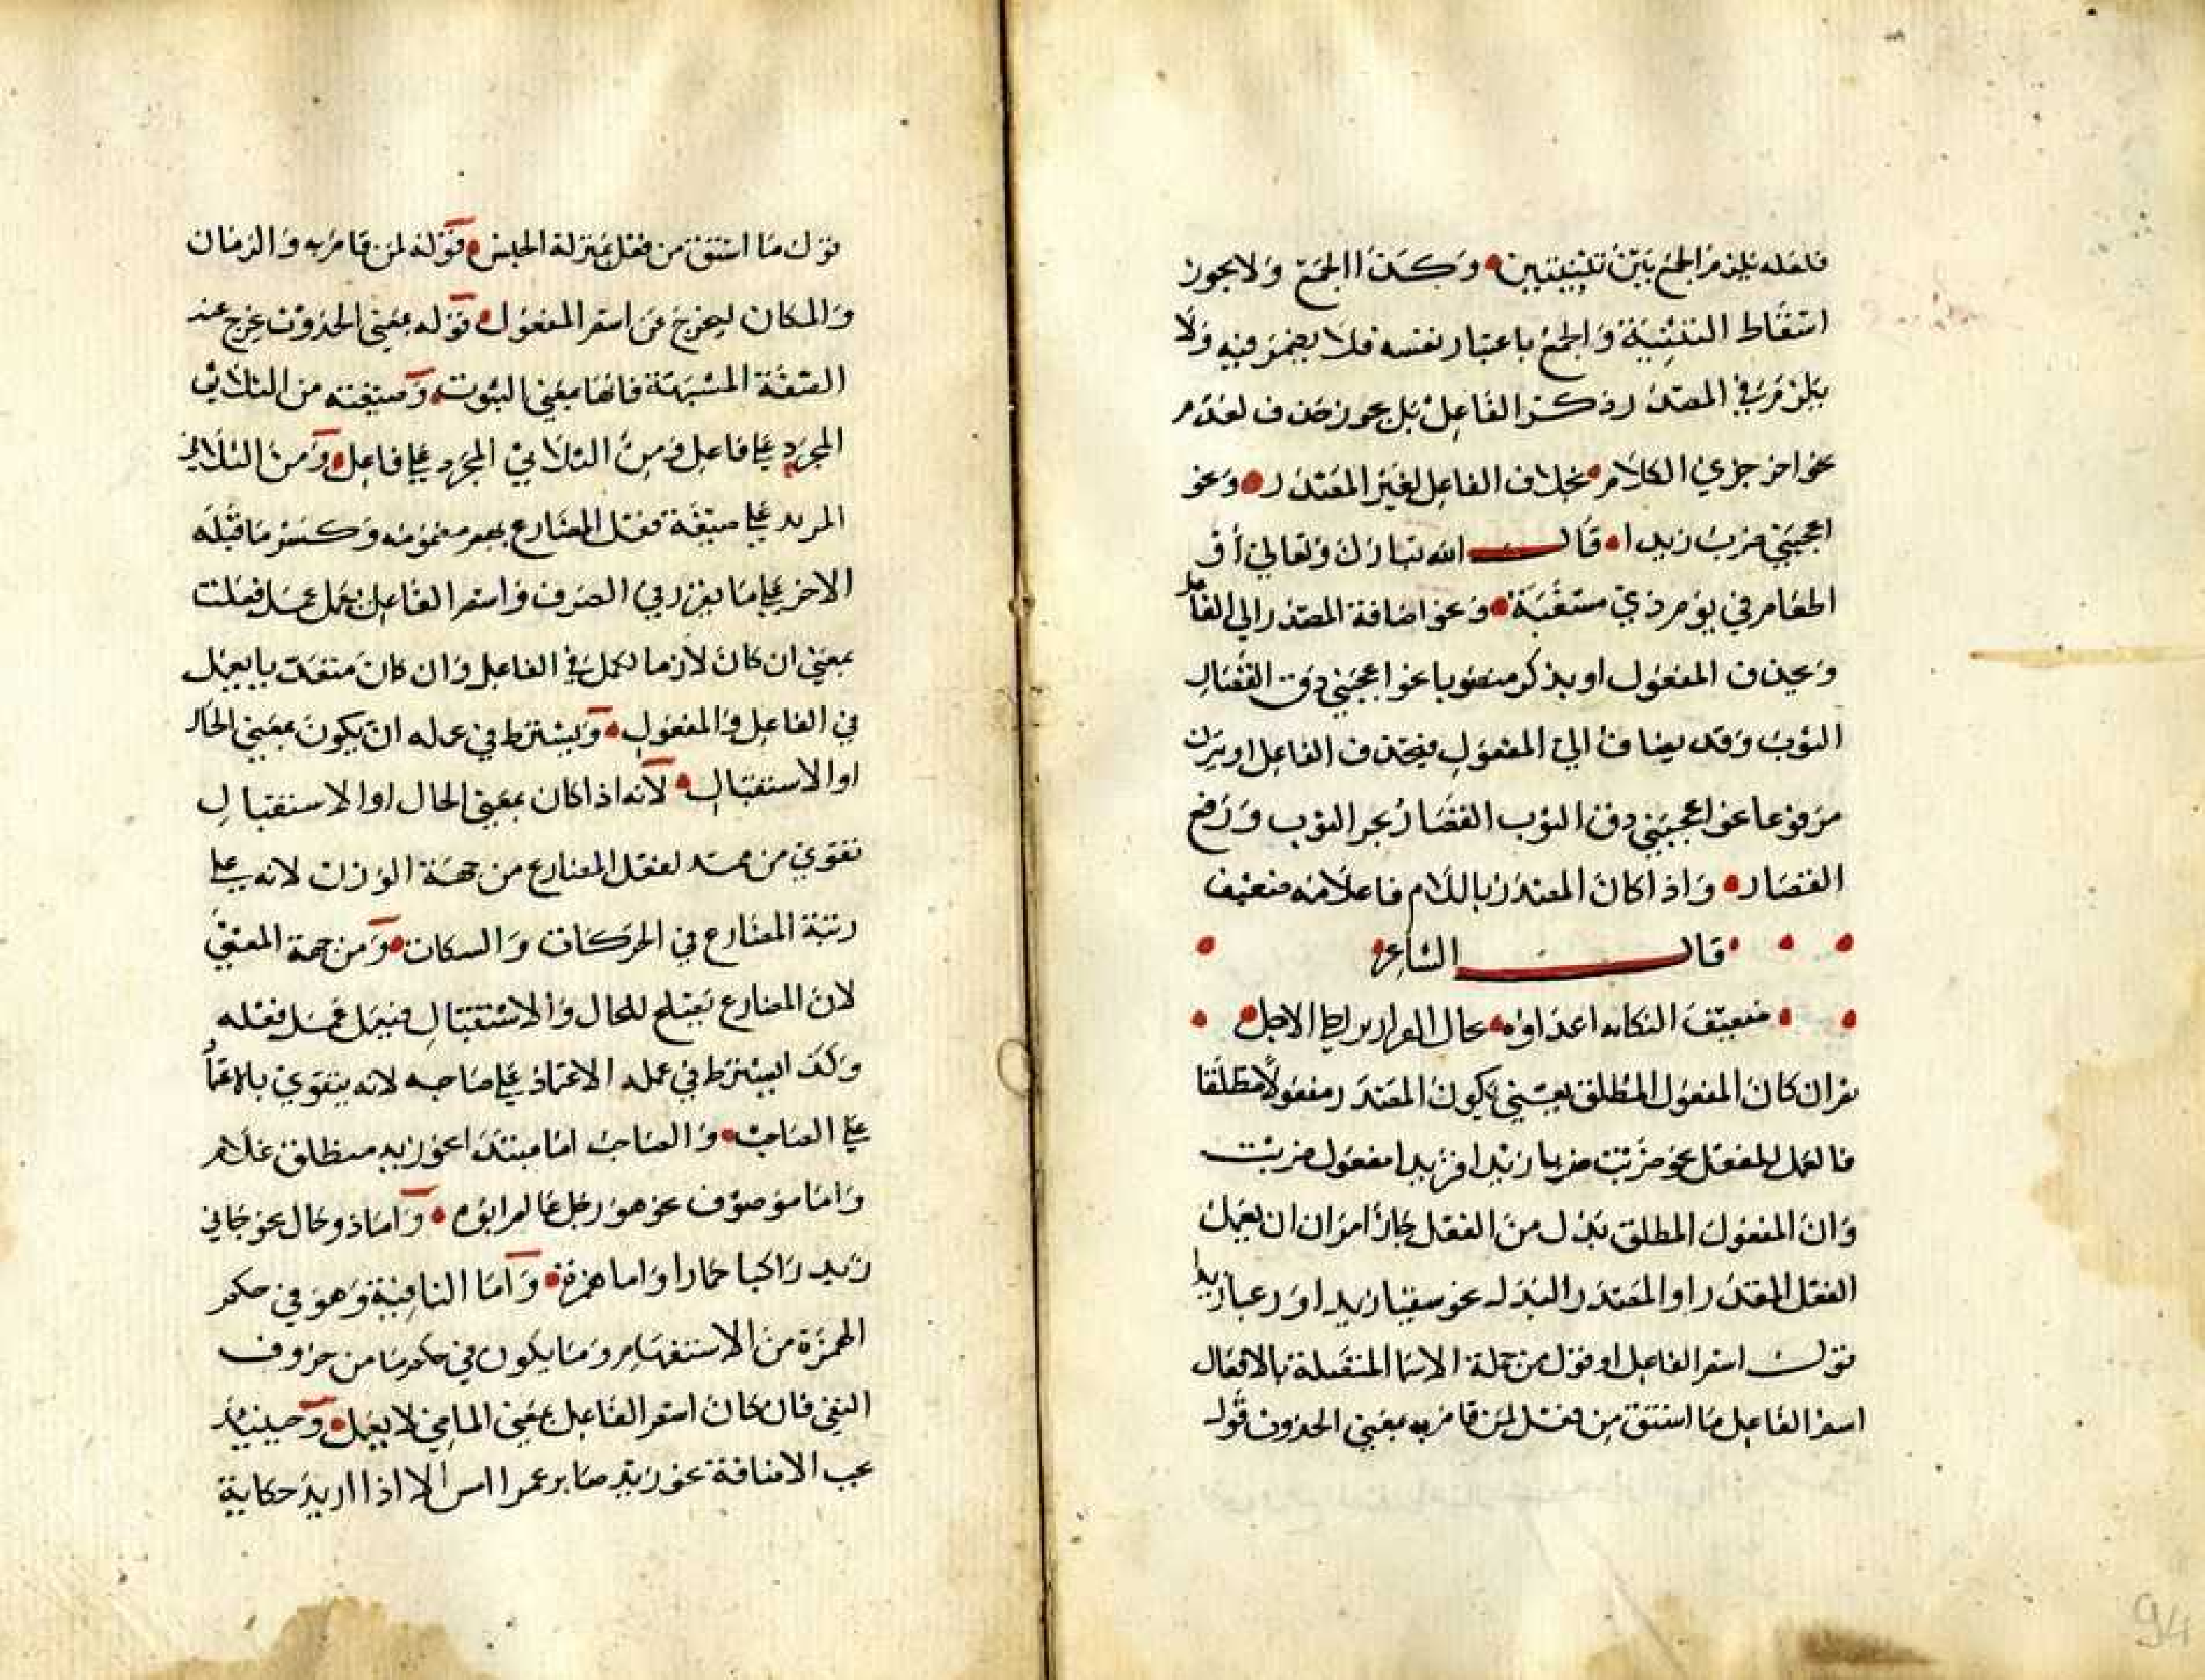 فلعله يلزم الجمع بين تثنيتين وكذا الجمع ولا يجوز
اسقاط التثنية والجمع باعتبار نفسه فلا يضمر فيه ولا
يلزم في المصدر ذكر الفاعل بل يجوز حذف لعدم
نحو اخر جزي الكلام بخلاف الفاعل لغير المصدر ونحو
اعجبني ضرب زيدا قال الله تبارك وتعالى أو
اطعام في يوم ذي مسغبة ونحو اضافة المصدر الى الفاعل
ويحذف المفعول او يذكر منصوبا نحو اعجبني دق القصار
الثوب وقد يضاف الى المفعول فيحذف الفاعل او يترك
مرفوعا نحو اعجبني دق الثوب القصار بجر الثوب ورفع
القصار واذا كان المصدر باللام فاعلامه ضعيف
قال الشاعر
ضعيف النكايه اعداوه يخال الفرار يراخي الاجل
ثم ان كان المفعول المطلق يعني يكون المصدر مفعولا مطلقا
فالعمل للفعل نحو ضربت ضربا زيدا فزيدا مفعول ضربت
وان المفعول المطلق بدل من الفعل جاز امران ان يعمل
الفعل المقدر او المصدر البدل نحو سقيا زيدا او رعيا زيدا
قوله اسم الفاعل اقول من جملة الاسما المتصلة بالافعال
اسم الفاعل ما اشتق من فعل لمن قام به بمعنى الحدوث قوله
قوله ما اشتق من فعل بمنزلة الجنس قوله لمن قام به والزمان
والمكان ليخرج عن اسم المفعول قوله بمعنى الحدوث يخرج عنه
الصفة المشبهة فانها بمعنى الثبوت وصيغته من الثلاثي
المجرد على فاعل ومن الثلاثي المجرد على فاعل ومن الثلاثي
المزيد على صيغة فعل المضارع بميم مضمومه وكسر ما قبله
الاخر على ما يقرر في الصرف واسم الفاعل يعمل عمل فعلت
بمعنى ان كان لازما يعمل في الفاعل وان كان متعديا يعمل
في الفاعل والمفعول ويشترط في عمله ان يكون بمعنى الحال
او الاستقبال لأنه اذا كان بمعنى الحال او الاستقبال
تقوي من لفعل المضارع من جهة الوزن لانه على
رتبة المضارع في الحركات والسكنات ومن جهة المعنى
لان المضارع يصلح للحال والاستقبال فيعمل عمل فعله
وكذا يشترط في عمله الاعتماد على صاحبه لانه يتقوي بالاعتماد
على الصاحب والصاحب اما مبتدا نحو زيد منطلق غلام
واما موصوف نحو هو رجل عالم ابوه واما ذو حال نحو جاني
زيد راكبا حمارا واما همزة واما النافية وهو في حكم
الهمزة من الاستفهام وما يكون في حكم ما من حروف
النفي فان كان اسم الفاعل بمعنى الماضي لا يعمل وحينئذ
يجب الاضافة نحو زيد صابر عمرا امس الا اذا اريد حكاية
94